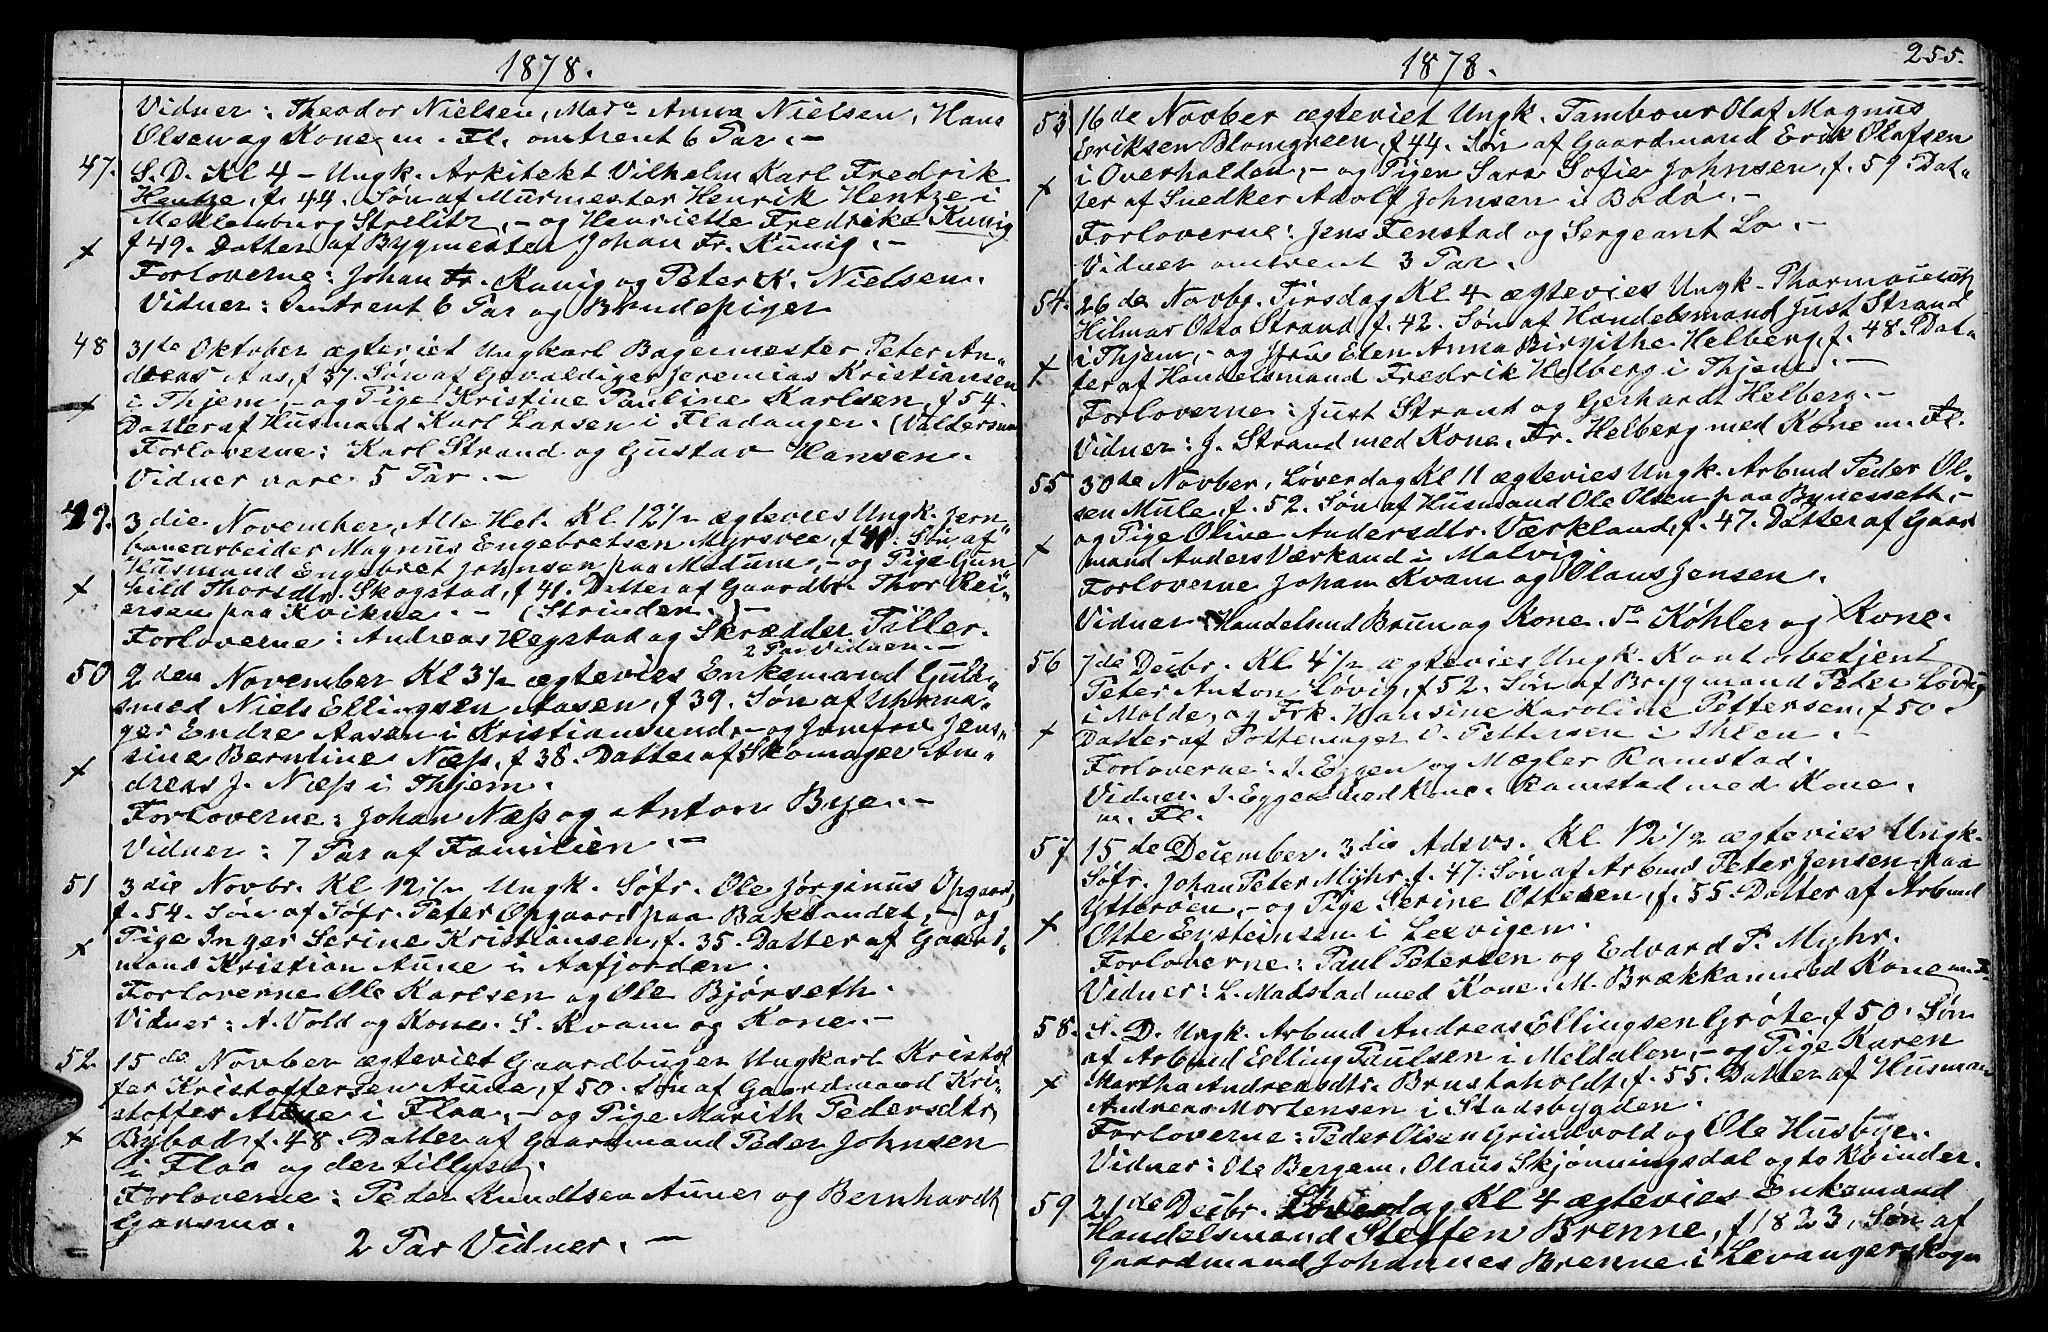 1878.
Vidner: Theodor Nielsen, Mar. Anna Nielsen, Hans
Olsen og Kone m. Fl. omtrent 6 Par. -
47. S. D. Kl 4 - Ungk. Arkitekt Vilhelm Karl Fredrik
Hentze, f. 44. Søn af Murmester Henrik Hentze i
Meklemburg Strelitz, - og Henriette Fredrike Kunig
+ f 49. Datter af Bygmester Johan Fr. Kunig. -
Forloverne: Johan Fr. Kunig og Peter K. Nielsen.
Vidner: Omtrent 6 Par og Brudepiger
48 31te Oktober ægteviet Ungkarl Bagermester Peter An-
dreas Aas, f 37. Søn af Gevaldiger Jeremias Kristiansen
+ i Thjem, - og Pige Kristine Pauline Karlsen, f 54.
Datter af Husmand Karl Larsen i Fladanger. (Valdersund
Forloverne: Karl Strand og Gustav Hansen.
Vidner vare 5 Par. -
49. 3die November, Alle Hel. Kl 12 1/2 ægtevies Ungk. Jern"
banearbeider Magnus Engebretsen Myrsvee, f 41. Søn af
Husmand Engebret Johnsen paa Modum, - og Pige Gun
+ hild Thorsdtr. Skogstad, f 41. Datter af Gaardbr. Thor Rei"
ersen paa Kvikne. - (Strinden.) -
Forloverne: Andreas Hegstad og Skrædder Tiller.
2 Par Vidner. -
50 2den November Kl 3 1/2 ægtevies Enkemand Guld"
smed Niels Ellingsen Aasen, f 39. Søn af Uhrma"
ger Endre Aasen i Kristiansund, - og Jomfru Jens"
sine Berntine Næss, f 38. Datter af Skomager An"
+ dreas J. Næss i Thjem.
Forloverne: Johan Næss og Anton Bye. -
Vidner: 7 Par af Familien. -
51 3die Novbr. Kl 12 1/2 Ungk. Søfr. Ole Jørginus Opgaard,
f. 54. Søn af Søfr. Peter Opgaard paa Baklandet, - og
+ Pige Inger Serine Kristiansen, f. 35. Datter af Gaard"
mand Kristian Aune i Aafjorden.
Forloverne Ole Karlsen og Ole Bjørseth.
Vidner: A. Vold og Kone. S. Kvam og Kone. -
52. 15de Novber ægteviet Gaardbruger Ungkarl Kristof
fer Kristoffersen Aune, f 50. Søn af Gaardmand Kri"
stoffer Aune i Flaa, - og Pige Marith Pedersdtr
+ Bybod, f. 48. Datter af Gaardmand Peder Johnsen
i Flaa og der tillyst.
Forloverne: Peder Knudtsen Auner og Bernhardt
Garsmo.
2 Par Vidner. -
1878. 255.
53 16de Novber ægteviet Ungk. Tambour Olaf Magnus
Eriksen Blomgreen, f 44. Søn af Gaardmand Erik Olafsen
+ i Overhalten, - og Pigen Sara Sofie Johnsen, f. 59. Dat"
ter af Snedker Adolf Johnsen i Bodø. -
Forloverne: Jens Fenstad og Sergeant Lo. -
Vidner omtrent 3 Par.
54. 26de Novbr. Tirsdag Kl 4 ægtevies Ungk.
Hilmar Otto Strand, f. 42. Søn af Handelsmand Just Strand
i Thjem, - og Jfru Eden Anna Birgithe Helberg, f. 48. Dat"
+ ter af Handelsmand Fredrik Helberg i Thjem. -
Forloverne: Just Strand og Gerhardt Helberg. -
Vidner: J. Strand med Kone. Fr. Helberg med Kone m. Fl.
55 30de Novber, Løverdag Kl 11 ægtevies Ungk. Arbmd Peder Ol"
sen Mule, f. 52. Søn af Husmand Ole Olsen paa Bynesseth, -
og Pige Olive Andersdtr. Værkland, f. 47. Datter af Gaar
+ mand Anders Værkand i Malvig.
Forloverne Johan Kvam og Olaus Jensen.
Vidner: Handelsmd Bruun og Kone. Do Køhler og Kone.
56 7de Decbr. Kl 4 1/2 ægtevies Ungk. Kontorbetjent
Peter Anton Løvig, f 52. Søn af Brygmand Peter Løvig
i Molde, og Frk. Hansine Karoline Pettersen, f 50.
+ Datter af Pottemager O. Pettersen i Ihlen. -
Forloverne: I. Eggen og Mægler Ramstad.
Vidner. I. Eggen med Kone. Ramstad med Kone.
m. Fl.
57 15de December. 3die Adsvs. Kl 12 1/2 ægtevies Ungk.
Søfr. Johan Peter Myhr. f. 47. Søn af Arbmd Peter Jensen paa
Ytterøen, - og Pige Serine Ottesen, f. 55. Datter af Arbmd
+ Otte Eysteinsen i Lexvigen.
Forloverne: Paul Petersen og Edvard P. Myhr.
Vidner: L. Madstad med Kone. M. Brækkan med Kone m. F.
58. S. D. Ungk. Arbmd Andreas Ellingsen Grøte, f 50. Søn
af Arbmd Elling Paulsen i Meldalen, - og Pige Karen
+ Martha Andreasdtr. Brustaholdt, f. 55. Datter af Husman
Andreas Mortensen i Stadsbygden.
Forloverne: Peder Olsen Grindvold og Ole Husbye.
Vidner: Ole Bergem. Olaus Skjønningsdal og to Kvinder.
59 21de Decbr. Løverdag Kl 4 ægtevies Enkemand
Handelsmand Steffen Brenne, f 1823, Søn af
Gaardmand Johannes Brenne i Levangerskogn